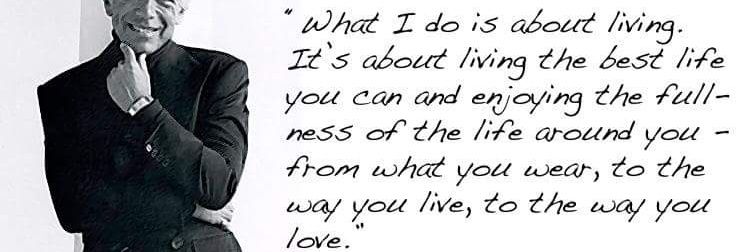 " What I do is about living.
It's about living the best life
you can and enjoying the full-
ness of the life around you -
from what you wear, to the
way you live, to the way you
love."